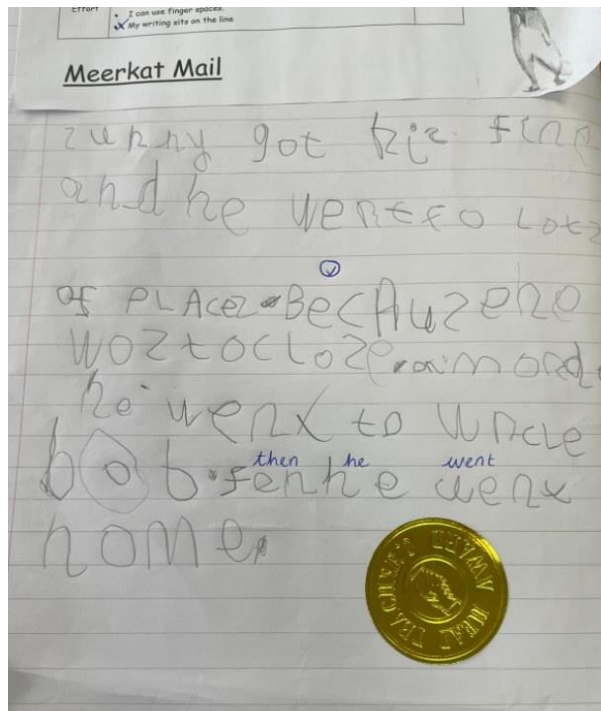 Effort
• I can use finger spaces.
• My writing sits on the line
Meerkat Mail
zunny got hiz fing
and he wentto Lotz
of PLAcez. BecAuzehe
woztocloze
he wenx to uncle
then he went
bob. fenhe wenx
home.
HEAD TEACHER'S AWARD